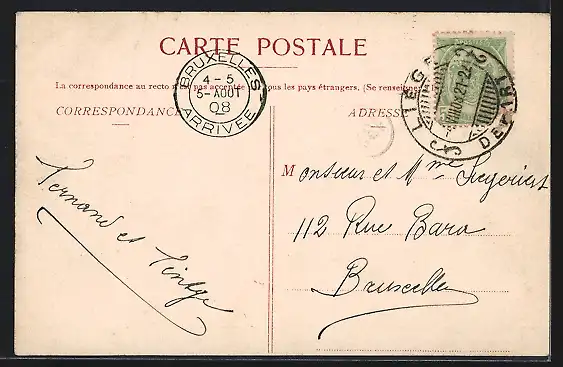 CARTE POSTALE
La correspondance au recto n'est pas acceptée tous les pays étrangers. (Se renseigner
BRUXELLES
4-5
5-AOUT
08
ARRIVÉE
LIEGE
DEPART
CORRESPONDANCE
ADRESSE
Monsieur et Mme
112 Rue Bara
Bruxelles
Fernand et